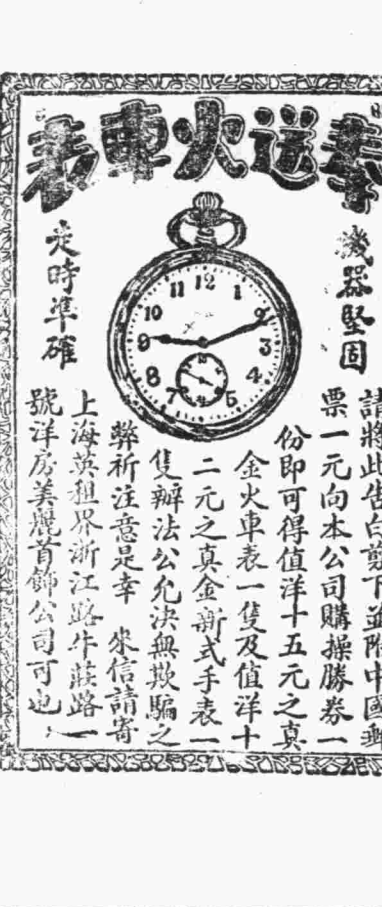 奉送火車表
機器堅固
11 12 1
10 2
9 3
8 4
7 5
走時準確
請將此告白剪下並附中國郵
票一元向本公司購操勝券一
份即可得值洋十五元之真
金火車表一隻及值洋十
二元之真金新式手表一
隻辦法公允決無欺騙之
弊祈注意是幸 來信請寄
上海英租界浙江路牛莊路一
號洋房美麗首飾公司可也